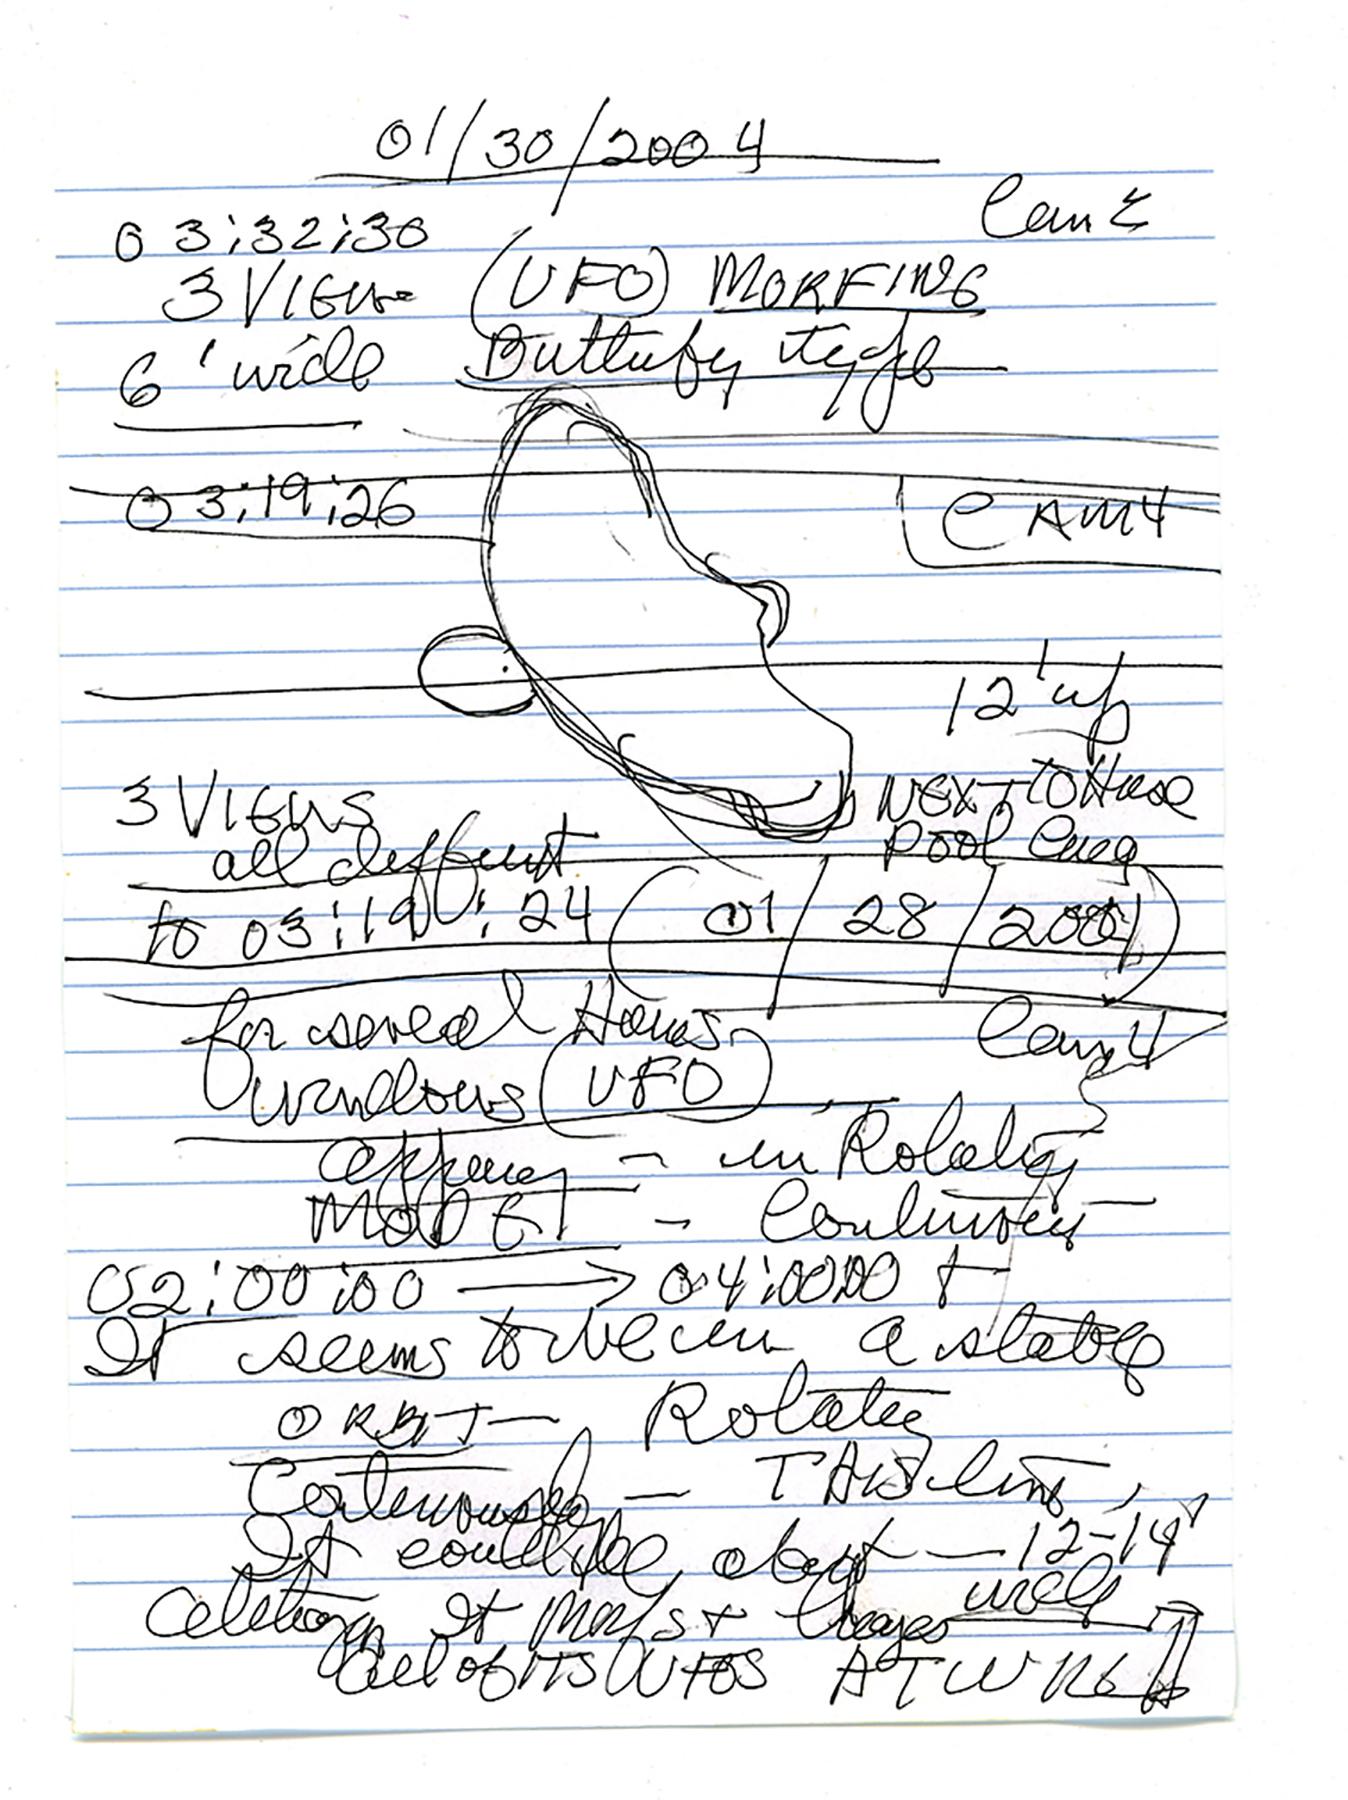 01/30/2004
Cam 2
03:32:30
3 Views (UFO) MORFING
6' wide Butterfly type
03:19:26
CAM 4
12' up
3 Views
NEXT TO House
all different
Pool
to 03:19:24 (01/28/2004)
for several Hours
Cam 4
windows (UFO)
appear - in Rotating
MODE -
02:00:00 → 04:00:00 +
It seems to be in a stable
ORBIT - Rotating
Continuously - THIS time,
It could be about - 12-14'
wide
It Morfs +
All of ITS UFOS AT WRK